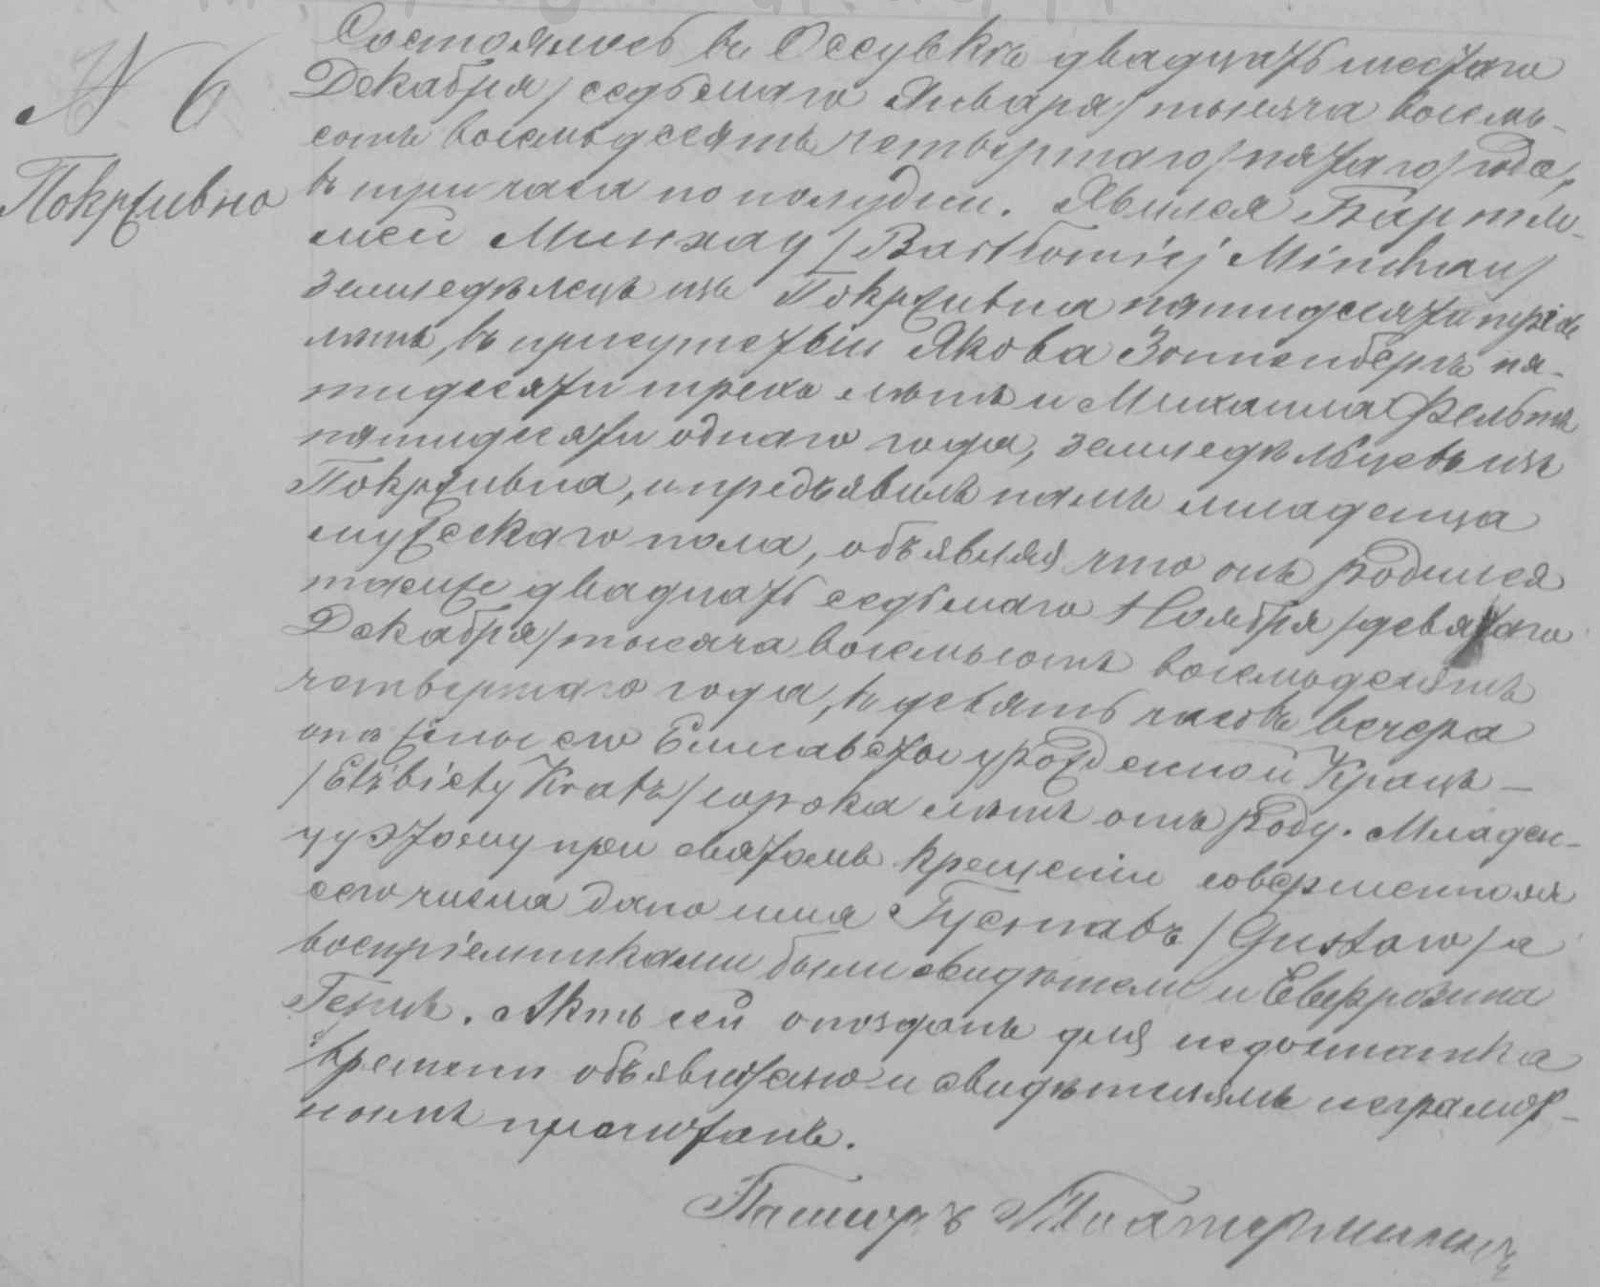 № 6
Покрживно
Состоялось въ Оссувкѣ двадцать шестаго
Декабря /седьмаго Января/ тысяча восемь-
сотъ восемьдесятъ четвертаго /пятаго/ года,
въ три часа по полудни. Явился Бартло-
мей Минхау /Bartłomiej Minchau/
земледѣлецъ изъ Покрживна пятидесяти трехъ
лѣтъ, въ присутствіи Якова Зонненбергъ пя-
тидесяти трехъ лѣтъ и Михаила
пятидесяти одного года, земледѣльцевъ изъ
Покрживна, и предъявилъ намъ младенца
мужескаго пола, объявляя что онъ родился
тамже двадцать седьмаго Ноября /девятаго
Декабря/ тысяча восемьсотъ восемьдесятъ
четвертаго года, въ девять часовъ вечера
отъ жены его Елисаветы урожденной Крацъ –
/Elżbiety Kratz/ сорока лѣтъ отъ роду. Младен-
цу этому при святомъ крещеніи совершенномъ
сего числа дано имя Густавъ /Gustaw/ а
воспріемниками были свидѣтели и Евфрозина
Акть сей опозданъ для недостатка
времени объявителю и свидѣтелямъ неграмот-
нымъ прочитанъ.
Пасторъ